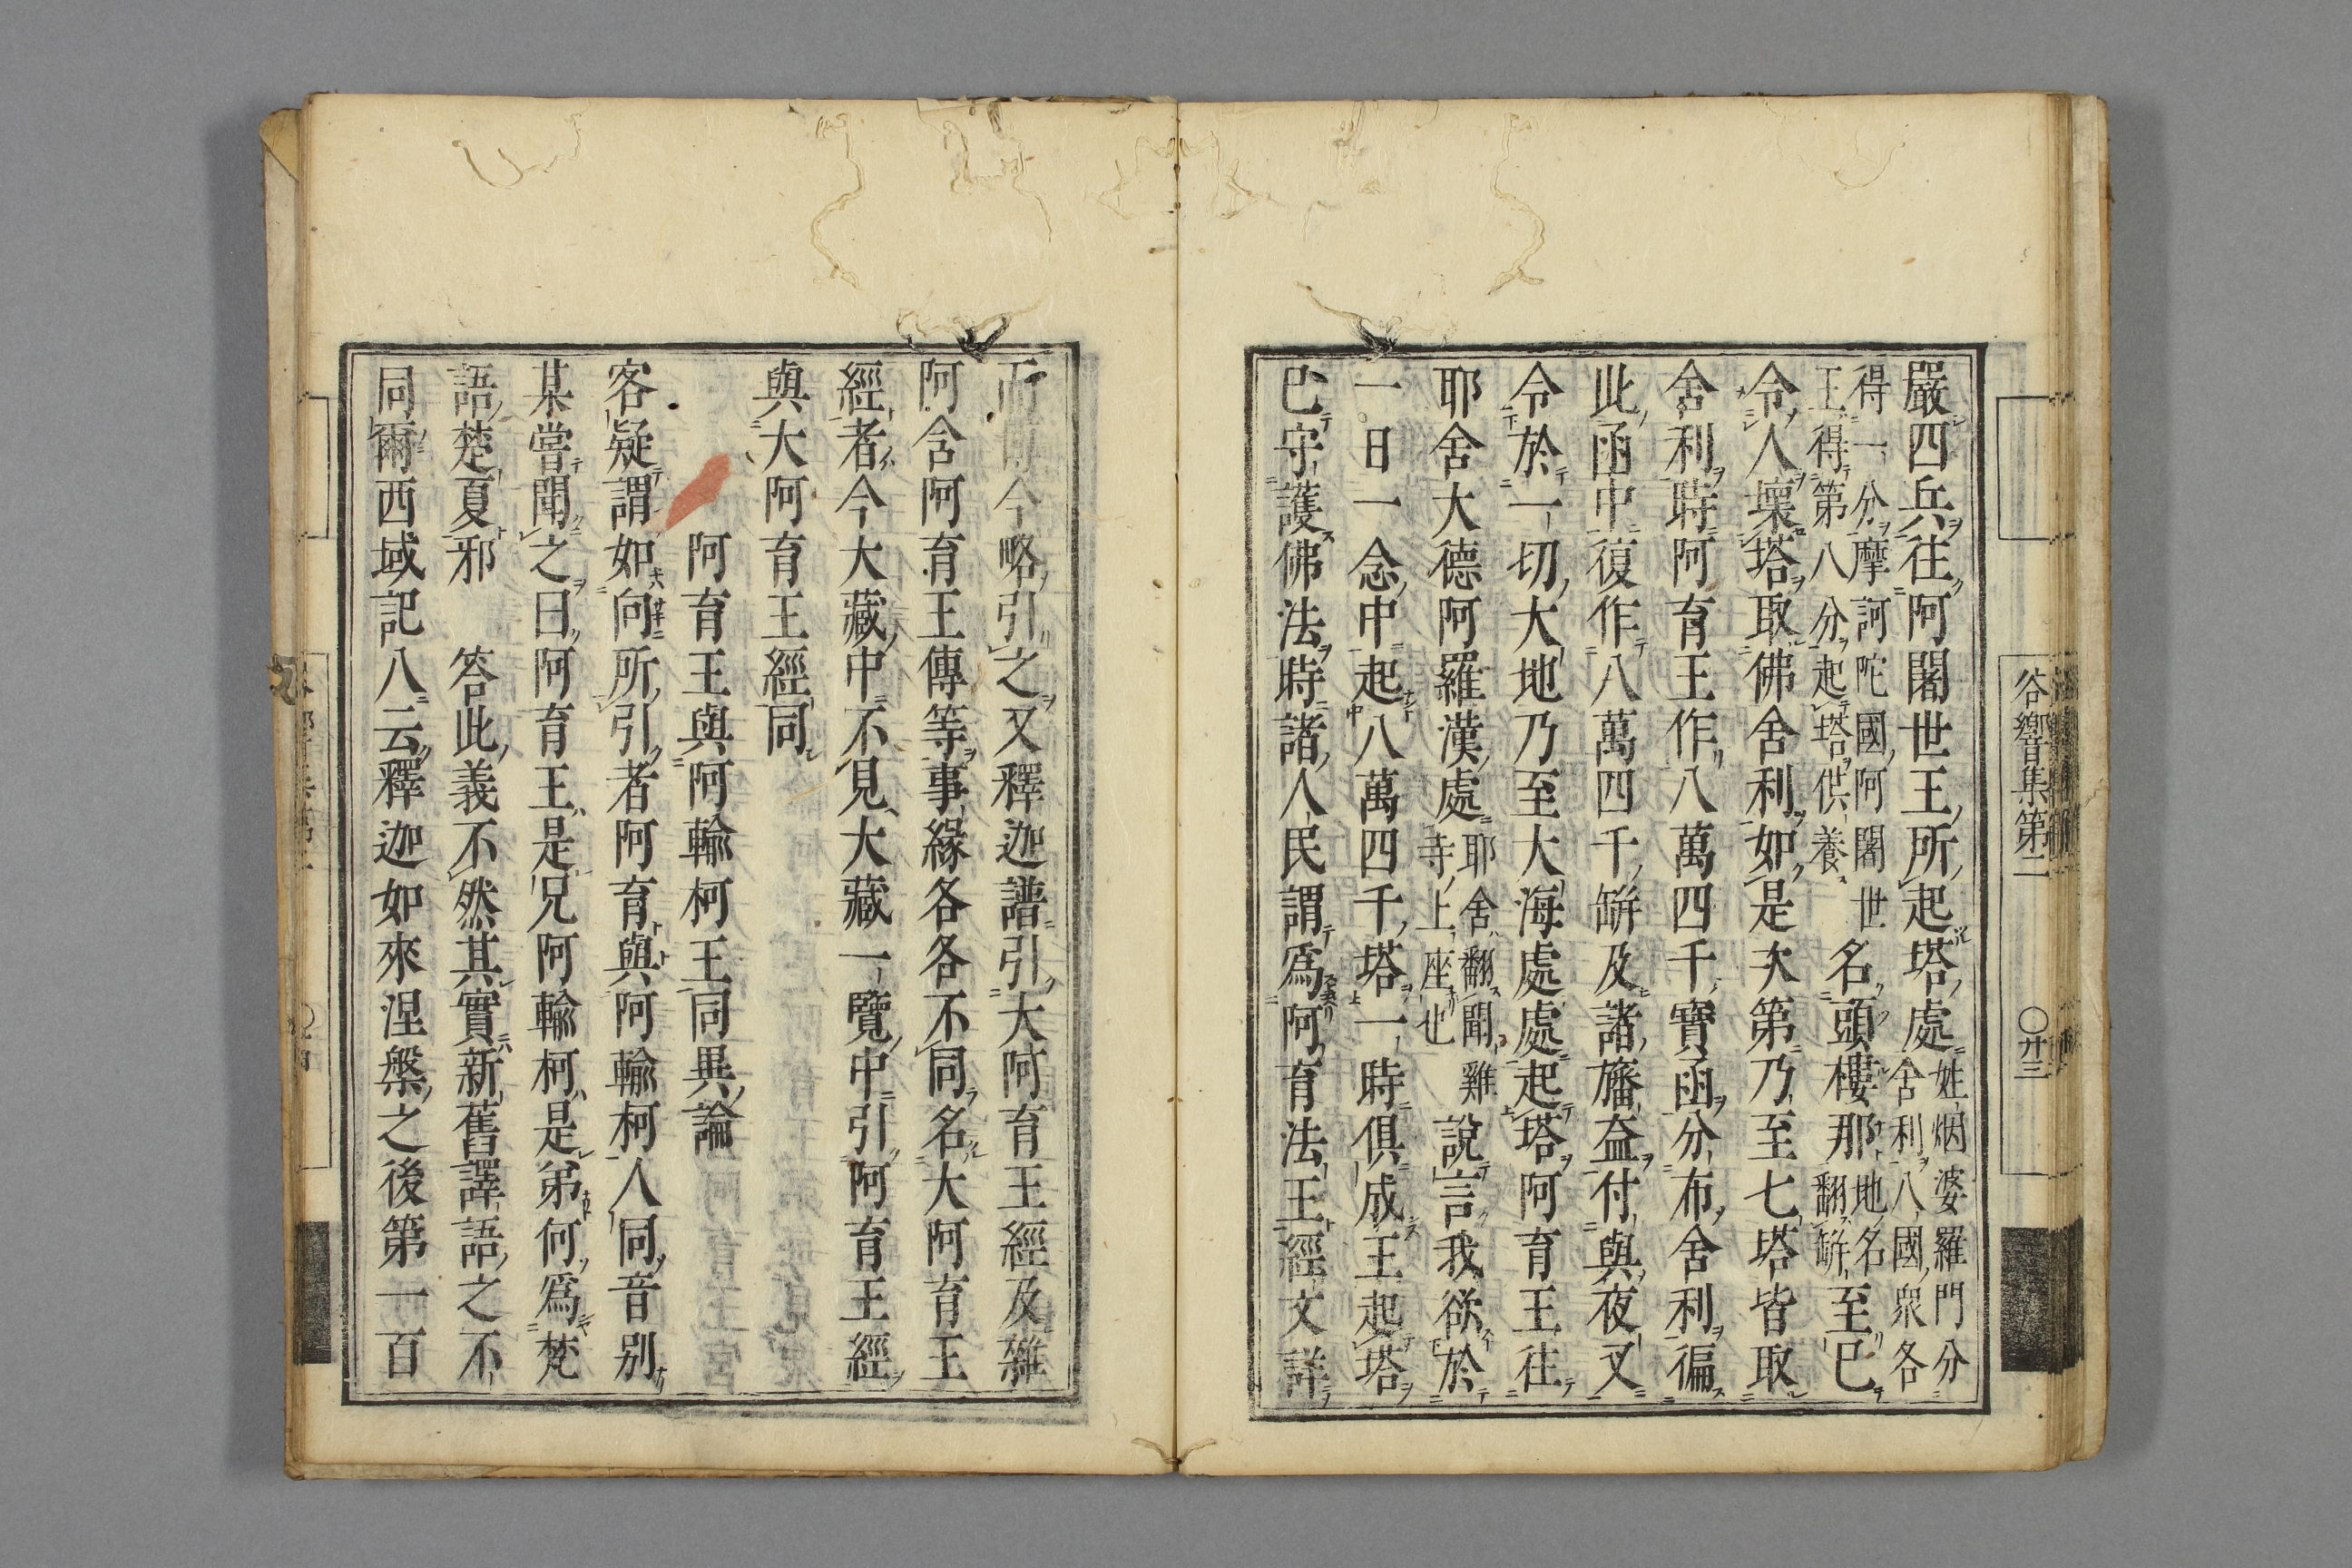 嚴四兵往阿闍世王所起塔處姓烟婆羅門分舍利八國衆各
得一分摩訶陀國阿闍世王得第八分起塔供養名頭樓那地名翻缾至已
令人壞塔取佛舍利如是次第乃至七塔皆取
舍利時阿育王作八萬四千寶函分布舍利徧
此函中復作八萬四千缾及諸旛盖付與夜叉
令於一切大地乃至大海處處起塔阿育王往
耶舍大德阿羅漢處耶舍翻聞雞寺上座也說言我欲於
一日一念中起八萬四千塔一時俱成王起塔
已守護佛法時諸人民謂爲阿育法王經文詳
谷響集第二
〇廿三
而今略引之又釋迦譜引大阿育王經及雜
阿含阿育王傳等事緣各各不同名大阿育王
經者今大藏中不見大藏一覽中引阿育王經
與大阿育王經同
阿育王與阿輸柯王同異論
客疑謂如向所引者阿育與阿輸柯人同音別
某嘗聞之曰阿育王是兄阿輸柯是弟何爲梵
語楚夏邪　答此義不然其實新舊譯語之不
同爾西域記八云釋迦如來涅槃之後第一百